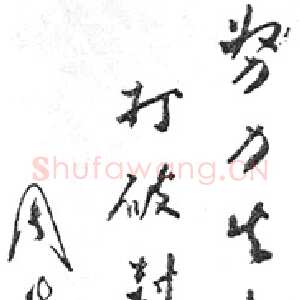 努力生
打破封
周
Shufawang.CN